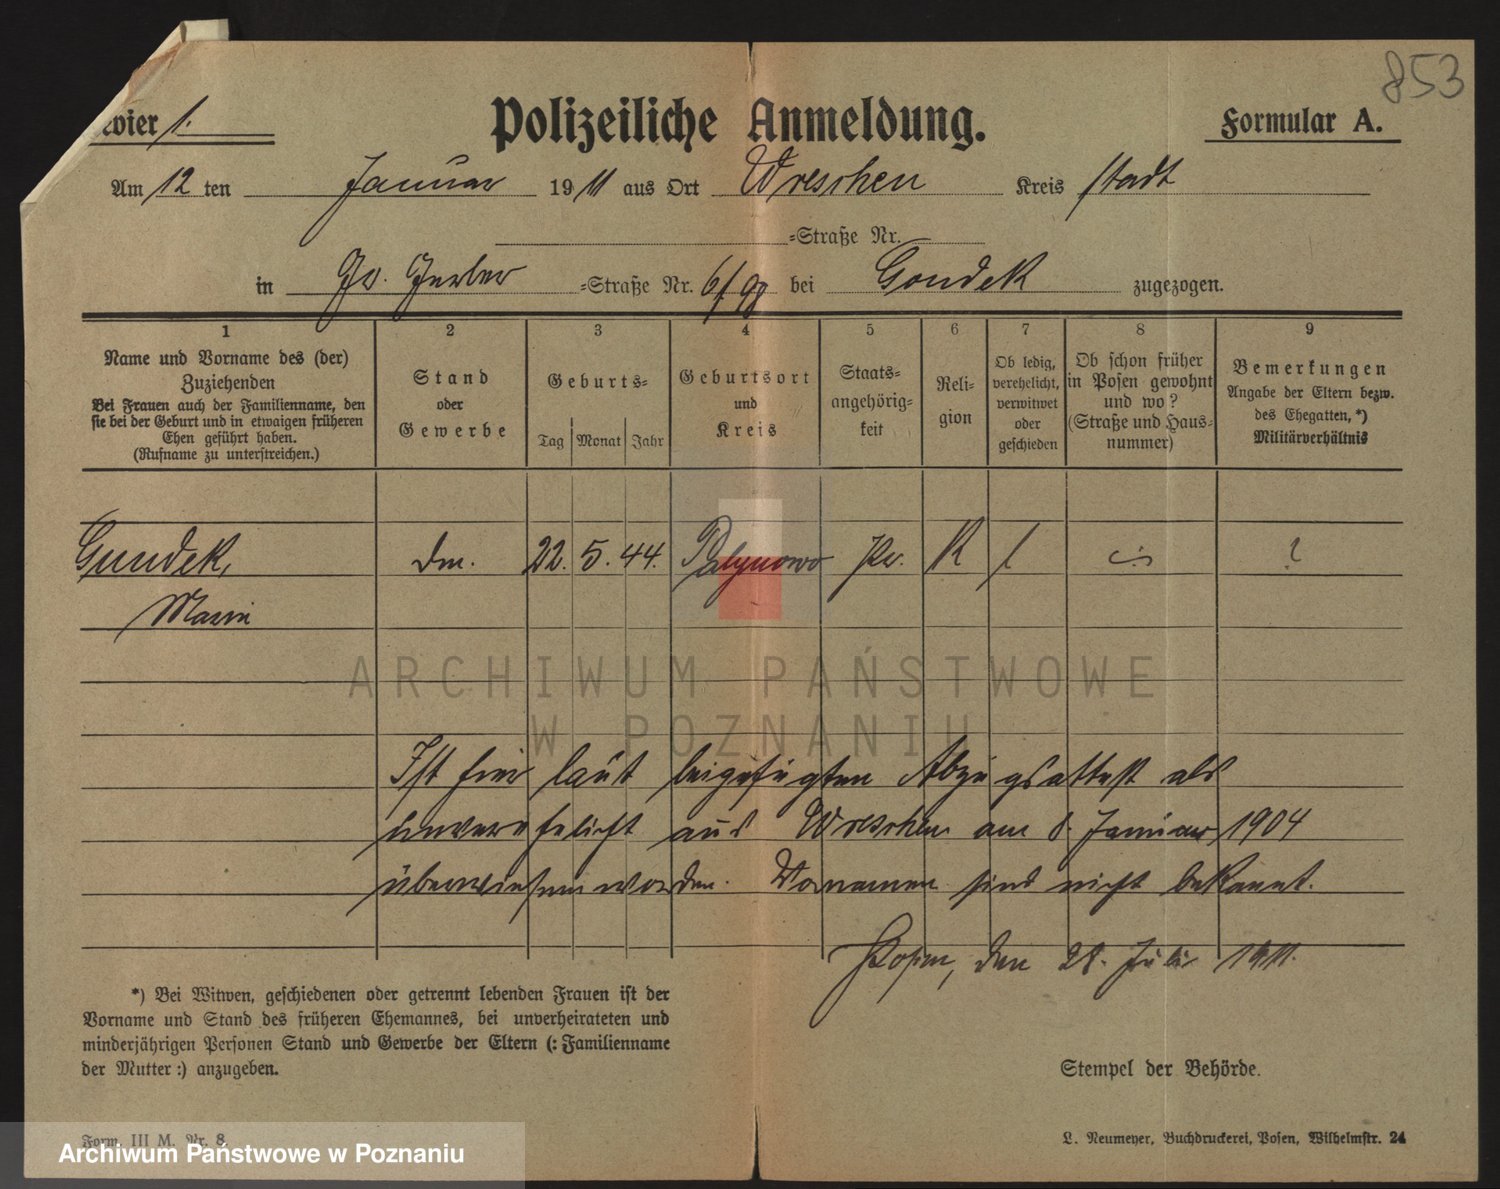 853
evier 1.
Polizeiliche Anmeldung.
Formular A.
Am 12 ten Januar 1911 aus Ort Wreschen Kreis Stadt
=Straße Nr.
in Gr. Gerber =Straße Nr. 6/ bei Gondek zugezogen.
1 2 3 4 5 6 7 8 9
Name und Vorname des (der)
Zuziehenden
Bei Frauen auch der Familienname, den
sie bei der Geburt und in etwaigen früheren
Ehen geführt haben.
(Rufname zu unterstreichen.)
Stand
oder
Gewerbe
Geburts=
Tag Monat Jahr
Geburtsort
und
Kreis
Staats=
angehörig=
keit
Reli=
gion
Ob ledig,
verehelicht,
verwitwet
oder
geschieden
Ob schon früher
in Posen gewohnt
und wo?
(Straße und Haus=
nummer)
Bemerkungen
Angabe der Eltern bezw.
des Ehegatten,*)
Militärverhältnis
Gundek, 22. 5. 44. Pr. K l ?
Marie
Ist hier laut beigefügten Abzugsattest als
unverehelicht aus Wreschen am 8. Januar 1904
überwiesen worden. Vornamen sind nicht bekannt.
Posen, den 28. Juli 1911.
*) Bei Witwen, geschiedenen oder getrennt lebenden Frauen ist der
Vorname und Stand des früheren Ehemannes, bei unverheirateten und
minderjährigen Personen Stand und Gewerbe der Eltern (: Familienname
der Mutter :) anzugeben.
Stempel der Behörde.
Form. III M. Nr. 8.
L. Neumeyer, Buchdruckerei, Posen, Wilhelmstr. 24
ARCHIWUM PAŃSTWOWE
W POZNANIU
Archiwum Państwowe w Poznaniu